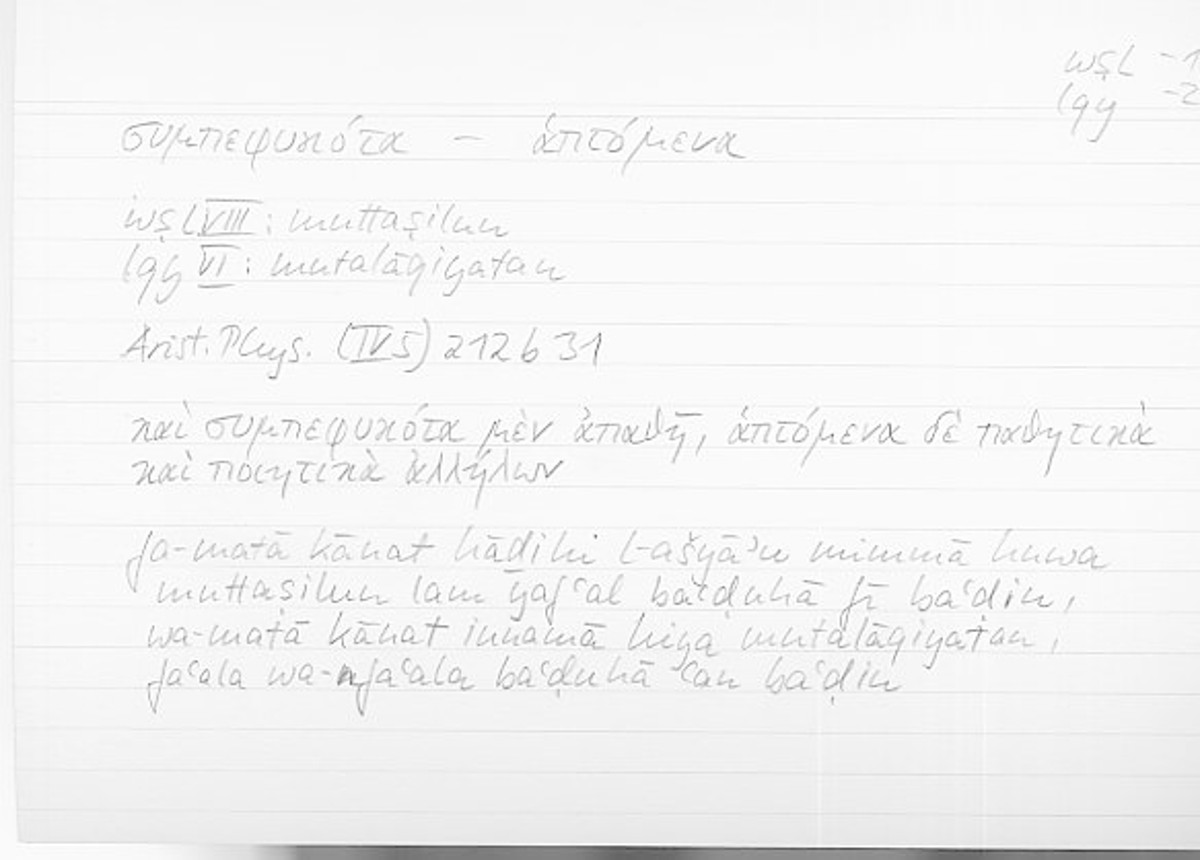 wṣl -1
lqy -2
συμπεφυκότα – ἁπτόμενα
wṣl VIII : muttaṣilun
lqy VI : mutalāqiyatan
Arist. Phys. (IV 5) 212 b 31
καὶ συμπεφυκότα μὲν ἀπαθῆ, ἁπτόμενα δὲ παθητικὰ
καὶ ποιητικὰ ἀλλήλων
fa-matā kānat hāḏihi l-ašyāʾu mimmā huwa
muttaṣilun lam yafʿal baʿḍuhā fī baʿḍin,
wa-matā kānat innamā hiya mutalāqiyatan,
faʿala wa-nfaʿala baʿḍuhā ʿan baʿḍin